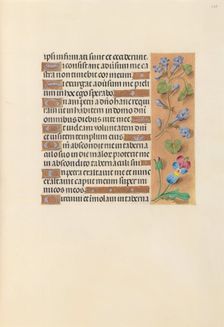 ipsi infirmati sunt et ceciderunt.
Si consistant adversum me ca
stra non timebit cor meum.
Si exurgat adversum me preli
um in hoc ego sperabo.
Unam petii a domino hanc requi
ram ut inhabitem in domo domi
ni omnibus diebus vite mee
Ut videam voluntatem domi
ni et visitem templum eius
in abscondit me in taberna
culo suo in die malorum protexit me
in abscondito tabernaculi sui.
In petra exaltavit me et nunc
exaltavit caput meum super ini
micos meos
et immolavi in taberna